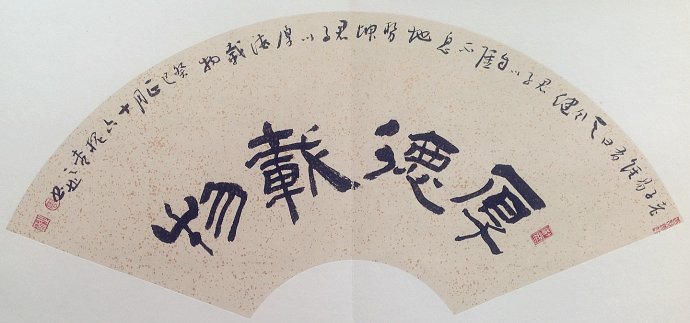 厚德載物
老子易经有曰天行健君子以自强不息地势坤君子以厚德載物癸巳正月十六